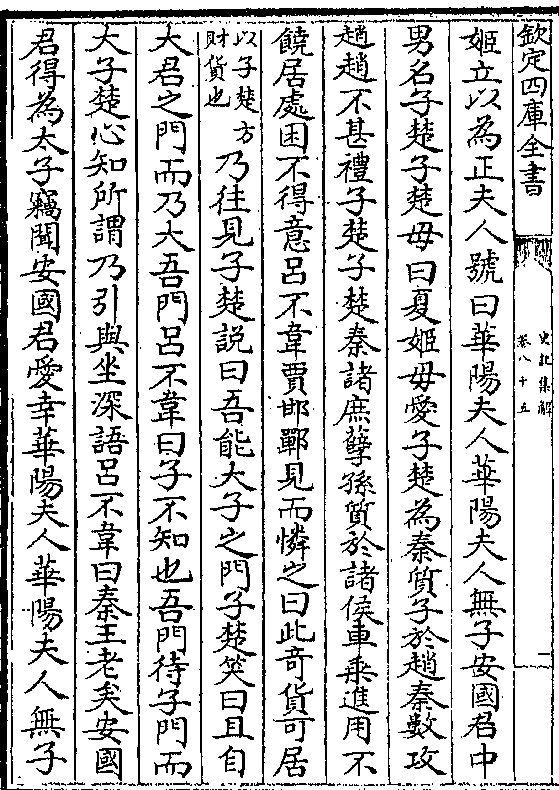 欽定四庫全書
史記集解
卷八十五
姬立以為正夫人號曰華陽夫人華陽夫人無子安國君中
男名子楚子楚母曰夏姬毋愛子楚為秦質子於趙秦數攻
趙趙不甚禮子楚子楚秦諸庶孽孫質於諸侯車乗進用不
饒居處困不得意呂不韋賈邯鄲見而憐之曰此竒貨可居
以子楚方
財貨也
乃往見子楚説曰吾能大子之門子楚笑曰且自
大君之門而乃大吾門呂不韋曰子不知也吾門待子門而
大子楚心知所謂乃引與坐深語呂不韋曰秦王老矣安國
君得為太子竊聞安國君愛幸華陽夫人華陽夫人無子